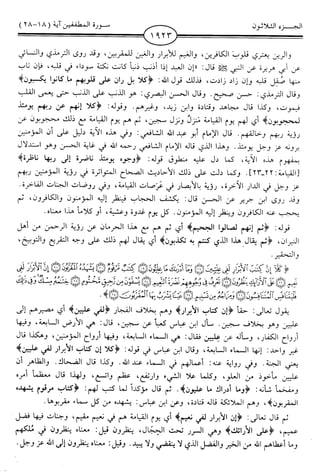 الجـــزء الثـلاثـون
١٩٢٣
سورة المطففين آية (١٨-٢٨)
والرين يعتري قلوب الكافرين، والغيم للأبرار والغين للمقربين، وقد روى الترمذي والنسائي
عن أبي هريرة عن النبي ﷺ قال: «إن العبد إذا أذنب ذنباً كانت نكتة سوداء في قلبه، فإن تاب
منها صقل قلبه وإن زاد زادت، فذلك قول الله: ﴿كلا بل ران على قلوبهم ما كانوا يكسبون﴾
وقال الترمذي: حسن صحيح. وقال الحسن البصري: هو الذنب على الذنب حتى يعمى القلب
فيموت، وكذا قال مجاهد وقتادة وابن زيد، وغيرهم. وقوله: ﴿كلا إنهم عن ربهم يومئذ
لمحجوبون﴾ أي لهم يوم القيامة منزل ونزل سجين، ثم هم يوم القيامة مع ذلك محجوبون عن
رؤية ربهم وخالقهم. قال الإمام أبو عبد الله الشافعي: وفي هذه الآية دليل على أن المؤمنين
يرونه عز وجل يومئذ. وهذا الذي قاله الإمام الشافعي رحمه الله في غاية الحسن وهو استدلال
بمفهوم هذه الآية، كما دل عليه منطوق قوله: ﴿وجوه يومئذ ناضرة إلى ربها ناظرة﴾
[القيامة: ٢٢-٢٣]. وكما دلت على ذلك الأحاديث الصحاح المتواترة في رؤية المؤمنين ربهم
عز وجل في الدار الآخرة، رؤية بالأبصار في عرصات القيامة، وفي روضات الجنات الفاخرة.
وقد روى ابن جرير عن الحسن قال: يكشف الحجاب فينظر إليه المؤمنون والكافرون، ثم
يحجب عنه الكافرون وينظر إليه المؤمنون. كل يوم غدوة وعشية، أو كلاماً هذا معناه.
قوله: ﴿ثم إنهم لصالوا الجحيم﴾ أي ثم هم مع هذا الحرمان عن رؤية الرحمن من أهل
النيران، ﴿ثم يقال هذا الذي كنتم به تكذبون﴾ أي يقال لهم ذلك على وجه التقريع والتوبيخ،
والتحقير.
يقول تعالى: حقاً ﴿إن كتاب الأبرار﴾ وهم بخلاف الفجار ﴿لفي عليين﴾ أي مصيرهم إلى
عليين وهو بخلاف سجين. سأل ابن عباس كعباً عن سجين، قال: هي الأرض السابعة، وفيها
أرواح الكفار، وسأله عن عليين فقال: هي السماء السابعة، وفيها أرواح المؤمنين، وهكذا قال
غير واحد: إنها السماء السابعة. وقال ابن عباس في قوله: ﴿كلا إن كتاب الأبرار لفي عليين﴾
يعني الجنة. وفي رواية عنه: أعمالهم في السماء عند الله. وكذا قال الضحاك. والظاهر أن
عليين مأخوذ من العلو، وكلما علا الشيء وارتفع، عظم واتسع، ولهذا قال معظماً أمره
ومفخماً شأنه: ﴿وما أدراك ما عليون﴾. ثم قال مؤكداً لما كتب لهم: ﴿كتاب مرقوم يشهده
المقربون﴾، وهم الملائكة قاله قتادة، وعن ابن عباس: يشهده من كل سماء مقربوها.
ثم قال تعالى: ﴿إن الأبرار لفي نعيم﴾ أي يوم القيامة هم في نعيم مقيم، وجنات فيها فضل
عميم، ﴿على الأرائك﴾ وهي السرر تحت الحجال، ينظرون قيل: معناه ينظرون في ملكهم
وما أعطاهم الله من الخير والفضل الذي لا ينقضي ولا يبيد. وقيل: معناه ينظرون إلى الله عز وجل.